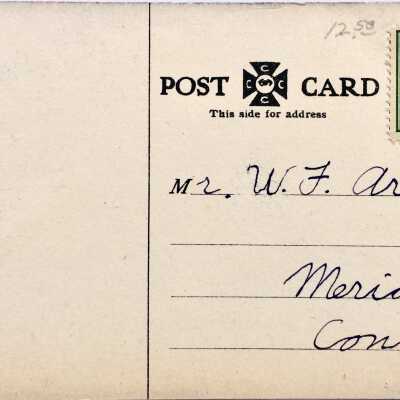 12.50
POST CARD
C C C C
This side for address
Mr. W. F. Ar
Meri
Con